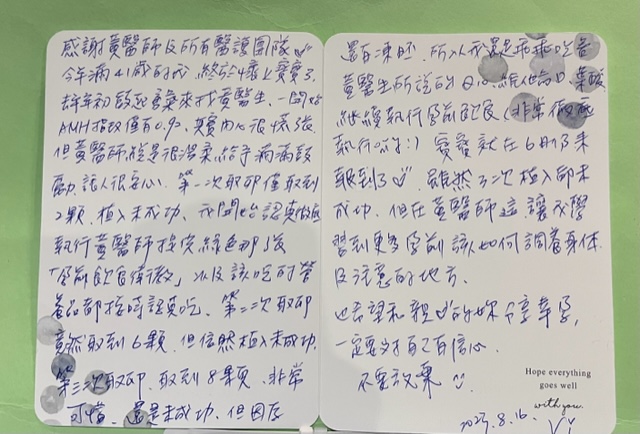 感謝黃醫師及所有醫護團隊♡
今年滿41歲的我，終於懷上寶寶了
去年初鼓起勇氣來找黃醫生，一開始
AMH指數值有0.9，其實內心很慌張
但黃醫師總是很溫柔給予滿滿鼓
勵，讓人很安心。第一次取卵僅取到
2顆，植入未成功，我開始認真徹底
執行黃醫師提供綠色那張
「孕前飲食衛教」以及該吃的營
養品都按時認真吃，第二次取卵
竟然取到6顆，但依然植入未成功，
第三次取卵，取到8顆，非常
可惜，還是未成功，但因存
還有凍胚，所以我還是乖乖吃著
黃醫生所說的Q10、維他命D、葉酸
繼續執行孕前飲食（非常徹底
執行:)）寶寶就在6月份來
報到了♡，雖然3次植入卵未
成功，但在黃醫師這讓我學
習到更多孕前該如何調養身體
及注意的地方。
也希望和親♡的妳分享幸孕，
一定要對自己有信心
不要放棄 ☺
Hope everything
goes well
with you.
2023.8.16.